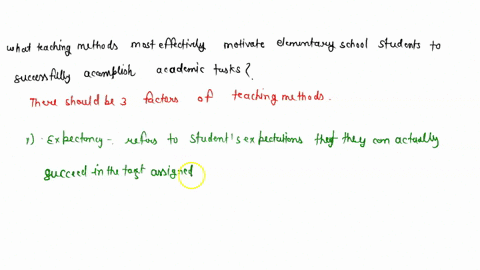 what teaching methods most effectively motivate elementary school students to
successfully acomplish academic tasks?
There should be 3 factors of teaching methods.
1) Expectancy - refers to student's expectations that they can actually
succeed in the task assigned